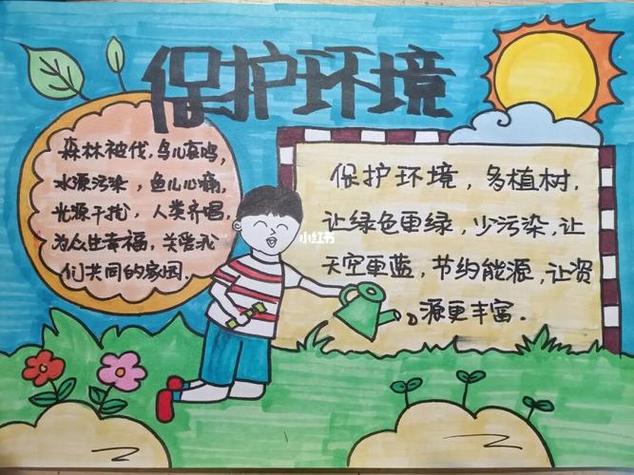 保护环境
森林被伐,鸟儿哀鸣,
水源污染,鱼儿心痛,
光源干扰,人类齐唱,
为众生幸福,关爱我
们共同的家园.
保护环境,多植树,
让绿色更绿,少污染,让
天空更蓝,节约能源,让资
源更丰富.
小红书